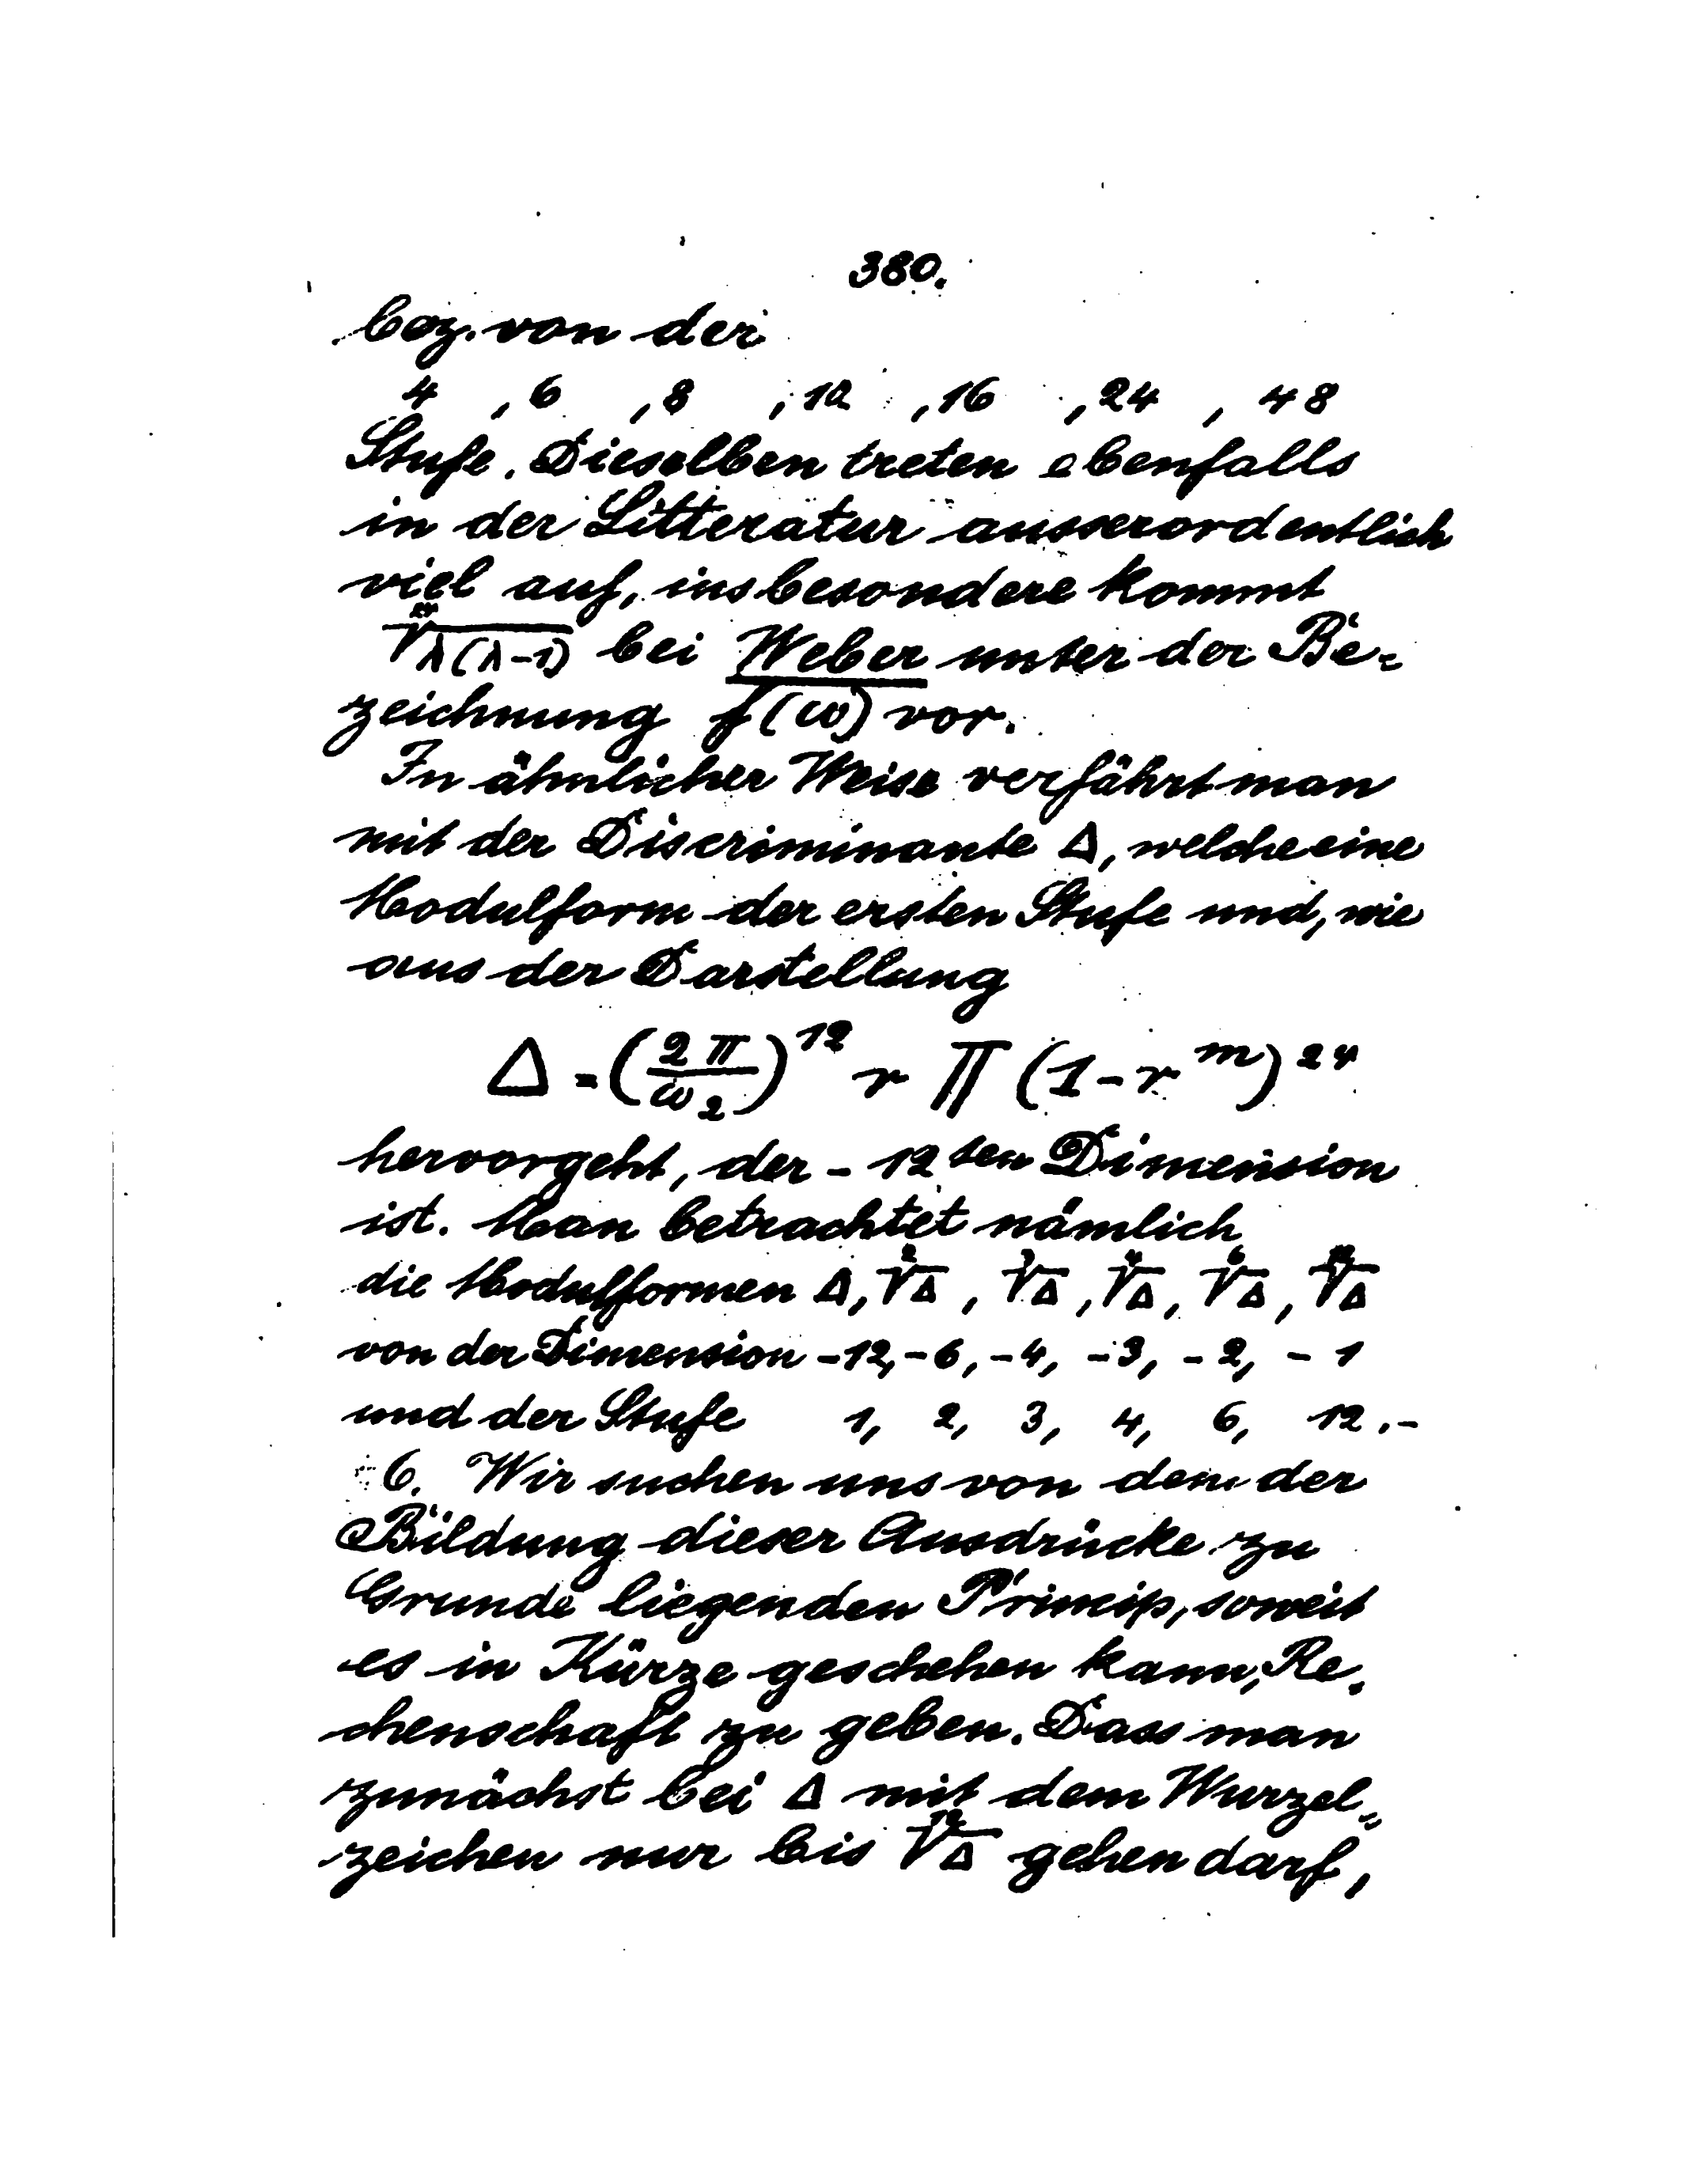 380.
bez. von der
4 , 6 , 8 , 12 , 16 , 24 , 48
Stufe. Dieselben treten ebenfalls
in der Litteratur ausserordentlich
viel auf, insbesondere kommt
²⁴√λ(λ-1) bei Weber unter der Be-
zeichnung f(ω) vor.
In ähnlicher Weise verfährt man
mit der Discriminante Δ, welche eine
Modulform der ersten Stufe und, wie
aus der Darstellung
Δ = (2π/ω₂)¹² r ∏ (1-r^m)²⁴
hervorgeht, der -12ten Dimension
ist. Man betrachtet nämlich
die Modulformen Δ, ²√Δ, ³√Δ, ⁴√Δ, ⁶√Δ, ¹²√Δ
von der Dimension -12, -6, -4, -3, -2, -1
und der Stufe 1, 2, 3, 4, 6, 12.-
6. Wir suchen uns von dem der
Bildung dieser Ausdrücke zu
Grunde liegenden Princip, soweit
es in Kürze geschehen kann, Re-
chenschaft zu geben. Dass man
zunächst bei Δ mit dem Wurzel-
zeichen nur bis ¹²√Δ gehen darf,